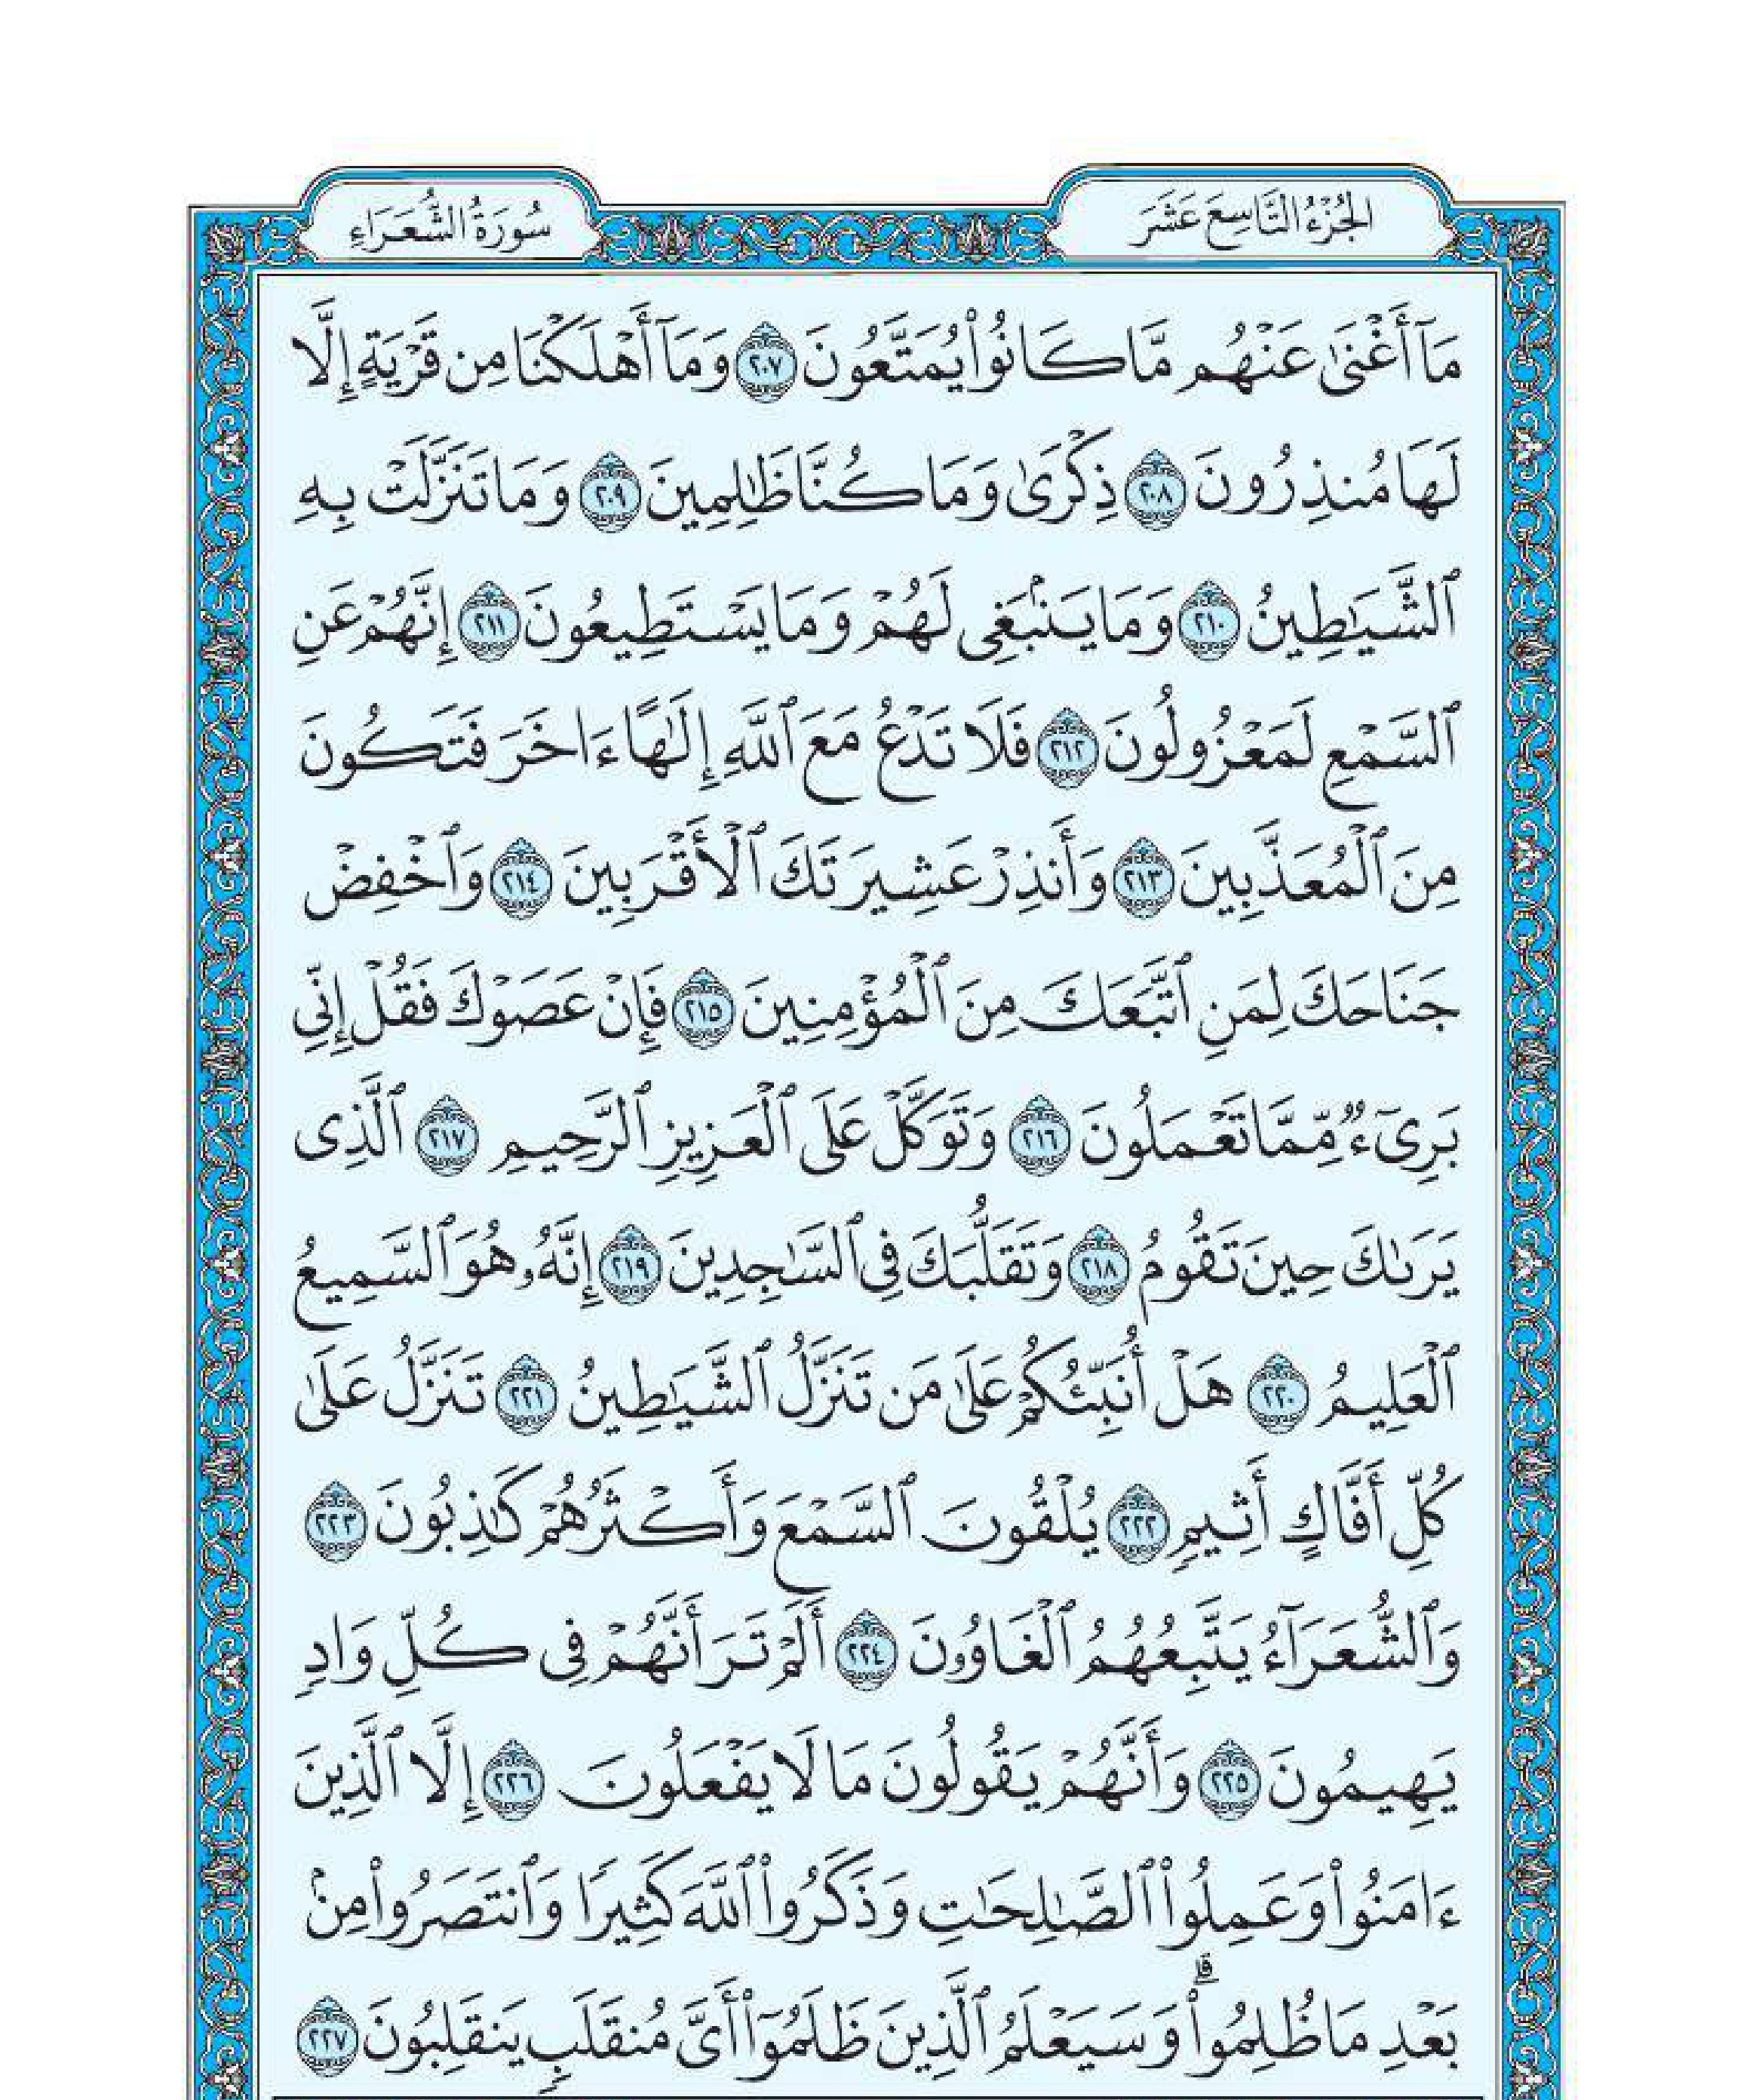 الجُزْءُ التَّاسِعَ عَشَرَ
سُورَةُ الشُّعَرَاءِ
مَآ أَغْنَىٰ عَنْهُم مَّا كَانُوا۟ يُمَتَّعُونَ ٢٠٧ وَمَآ أَهْلَكْنَا مِن قَرْيَةٍ إِلَّا
لَهَا مُنذِرُونَ ٢٠٨ ذِكْرَىٰ وَمَا كُنَّا ظَٰلِمِينَ ٢٠٩ وَمَا تَنَزَّلَتْ بِهِ
ٱلشَّيَٰطِينُ ٢١٠ وَمَا يَنۢبَغِى لَهُمْ وَمَا يَسْتَطِيعُونَ ٢١١ إِنَّهُمْ عَنِ
ٱلسَّمْعِ لَمَعْزُولُونَ ٢١٢ فَلَا تَدْعُ مَعَ ٱللَّهِ إِلَٰهًا ءَاخَرَ فَتَكُونَ
مِنَ ٱلْمُعَذَّبِينَ ٢١٣ وَأَنذِرْ عَشِيرَتَكَ ٱلْأَقْرَبِينَ ٢١٤ وَٱخْفِضْ
جَنَاحَكَ لِمَنِ ٱتَّبَعَكَ مِنَ ٱلْمُؤْمِنِينَ ٢١٥ فَإِنْ عَصَوْكَ فَقُلْ إِنِّى
بَرِىٓءٌ مِّمَّا تَعْمَلُونَ ٢١٦ وَتَوَكَّلْ عَلَى ٱلْعَزِيزِ ٱلرَّحِيمِ ٢١٧ ٱلَّذِى
يَرَىٰكَ حِينَ تَقُومُ ٢١٨ وَتَقَلُّبَكَ فِى ٱلسَّٰجِدِينَ ٢١٩ إِنَّهُۥ هُوَ ٱلسَّمِيعُ
ٱلْعَلِيمُ ٢٢٠ هَلْ أُنَبِّئُكُمْ عَلَىٰ مَن تَنَزَّلُ ٱلشَّيَٰطِينُ ٢٢١ تَنَزَّلُ عَلَىٰ
كُلِّ أَفَّاكٍ أَثِيمٍ ٢٢٢ يُلْقُونَ ٱلسَّمْعَ وَأَكْثَرُهُمْ كَٰذِبُونَ ٢٢٣
وَٱلشُّعَرَآءُ يَتَّبِعُهُمُ ٱلْغَاوُۥنَ ٢٢٤ أَلَمْ تَرَ أَنَّهُمْ فِى كُلِّ وَادٍ
يَهِيمُونَ ٢٢٥ وَأَنَّهُمْ يَقُولُونَ مَا لَا يَفْعَلُونَ ٢٢٦ إِلَّا ٱلَّذِينَ
ءَامَنُوا۟ وَعَمِلُوا۟ ٱلصَّٰلِحَٰتِ وَذَكَرُوا۟ ٱللَّهَ كَثِيرًا وَٱنتَصَرُوا۟ مِنۢ
بَعْدِ مَا ظُلِمُوا۟ ۗ وَسَيَعْلَمُ ٱلَّذِينَ ظَلَمُوٓا۟ أَىَّ مُنقَلَبٍ يَنقَلِبُونَ ٢٢٧